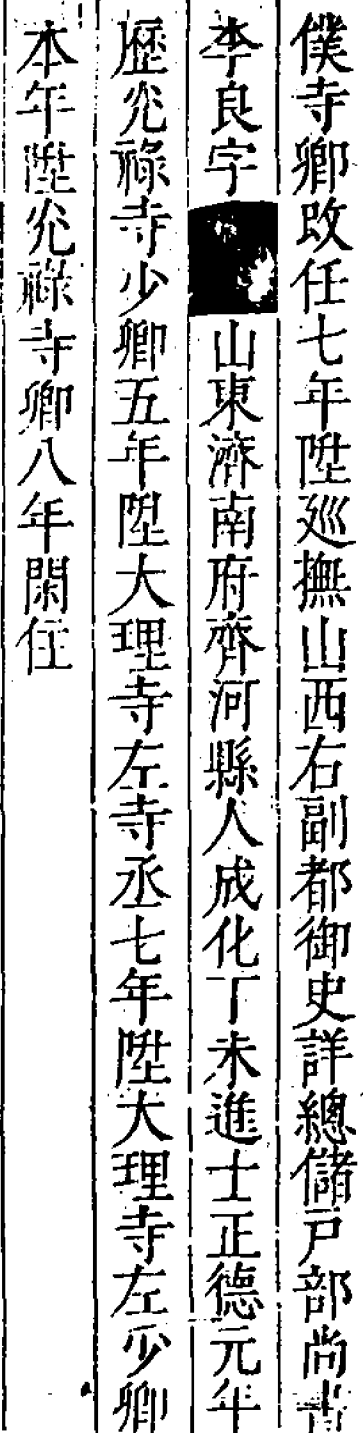 僕寺卿改任七年陞巡撫山西右副都御史詳總儲戶部尚書
李良字 山東濟南府齊河縣人成化丁未進士正德元年
歷光祿寺少卿五年陞大理寺左寺丞七年陞大理寺左少卿
本年陞光祿寺卿八年閑住